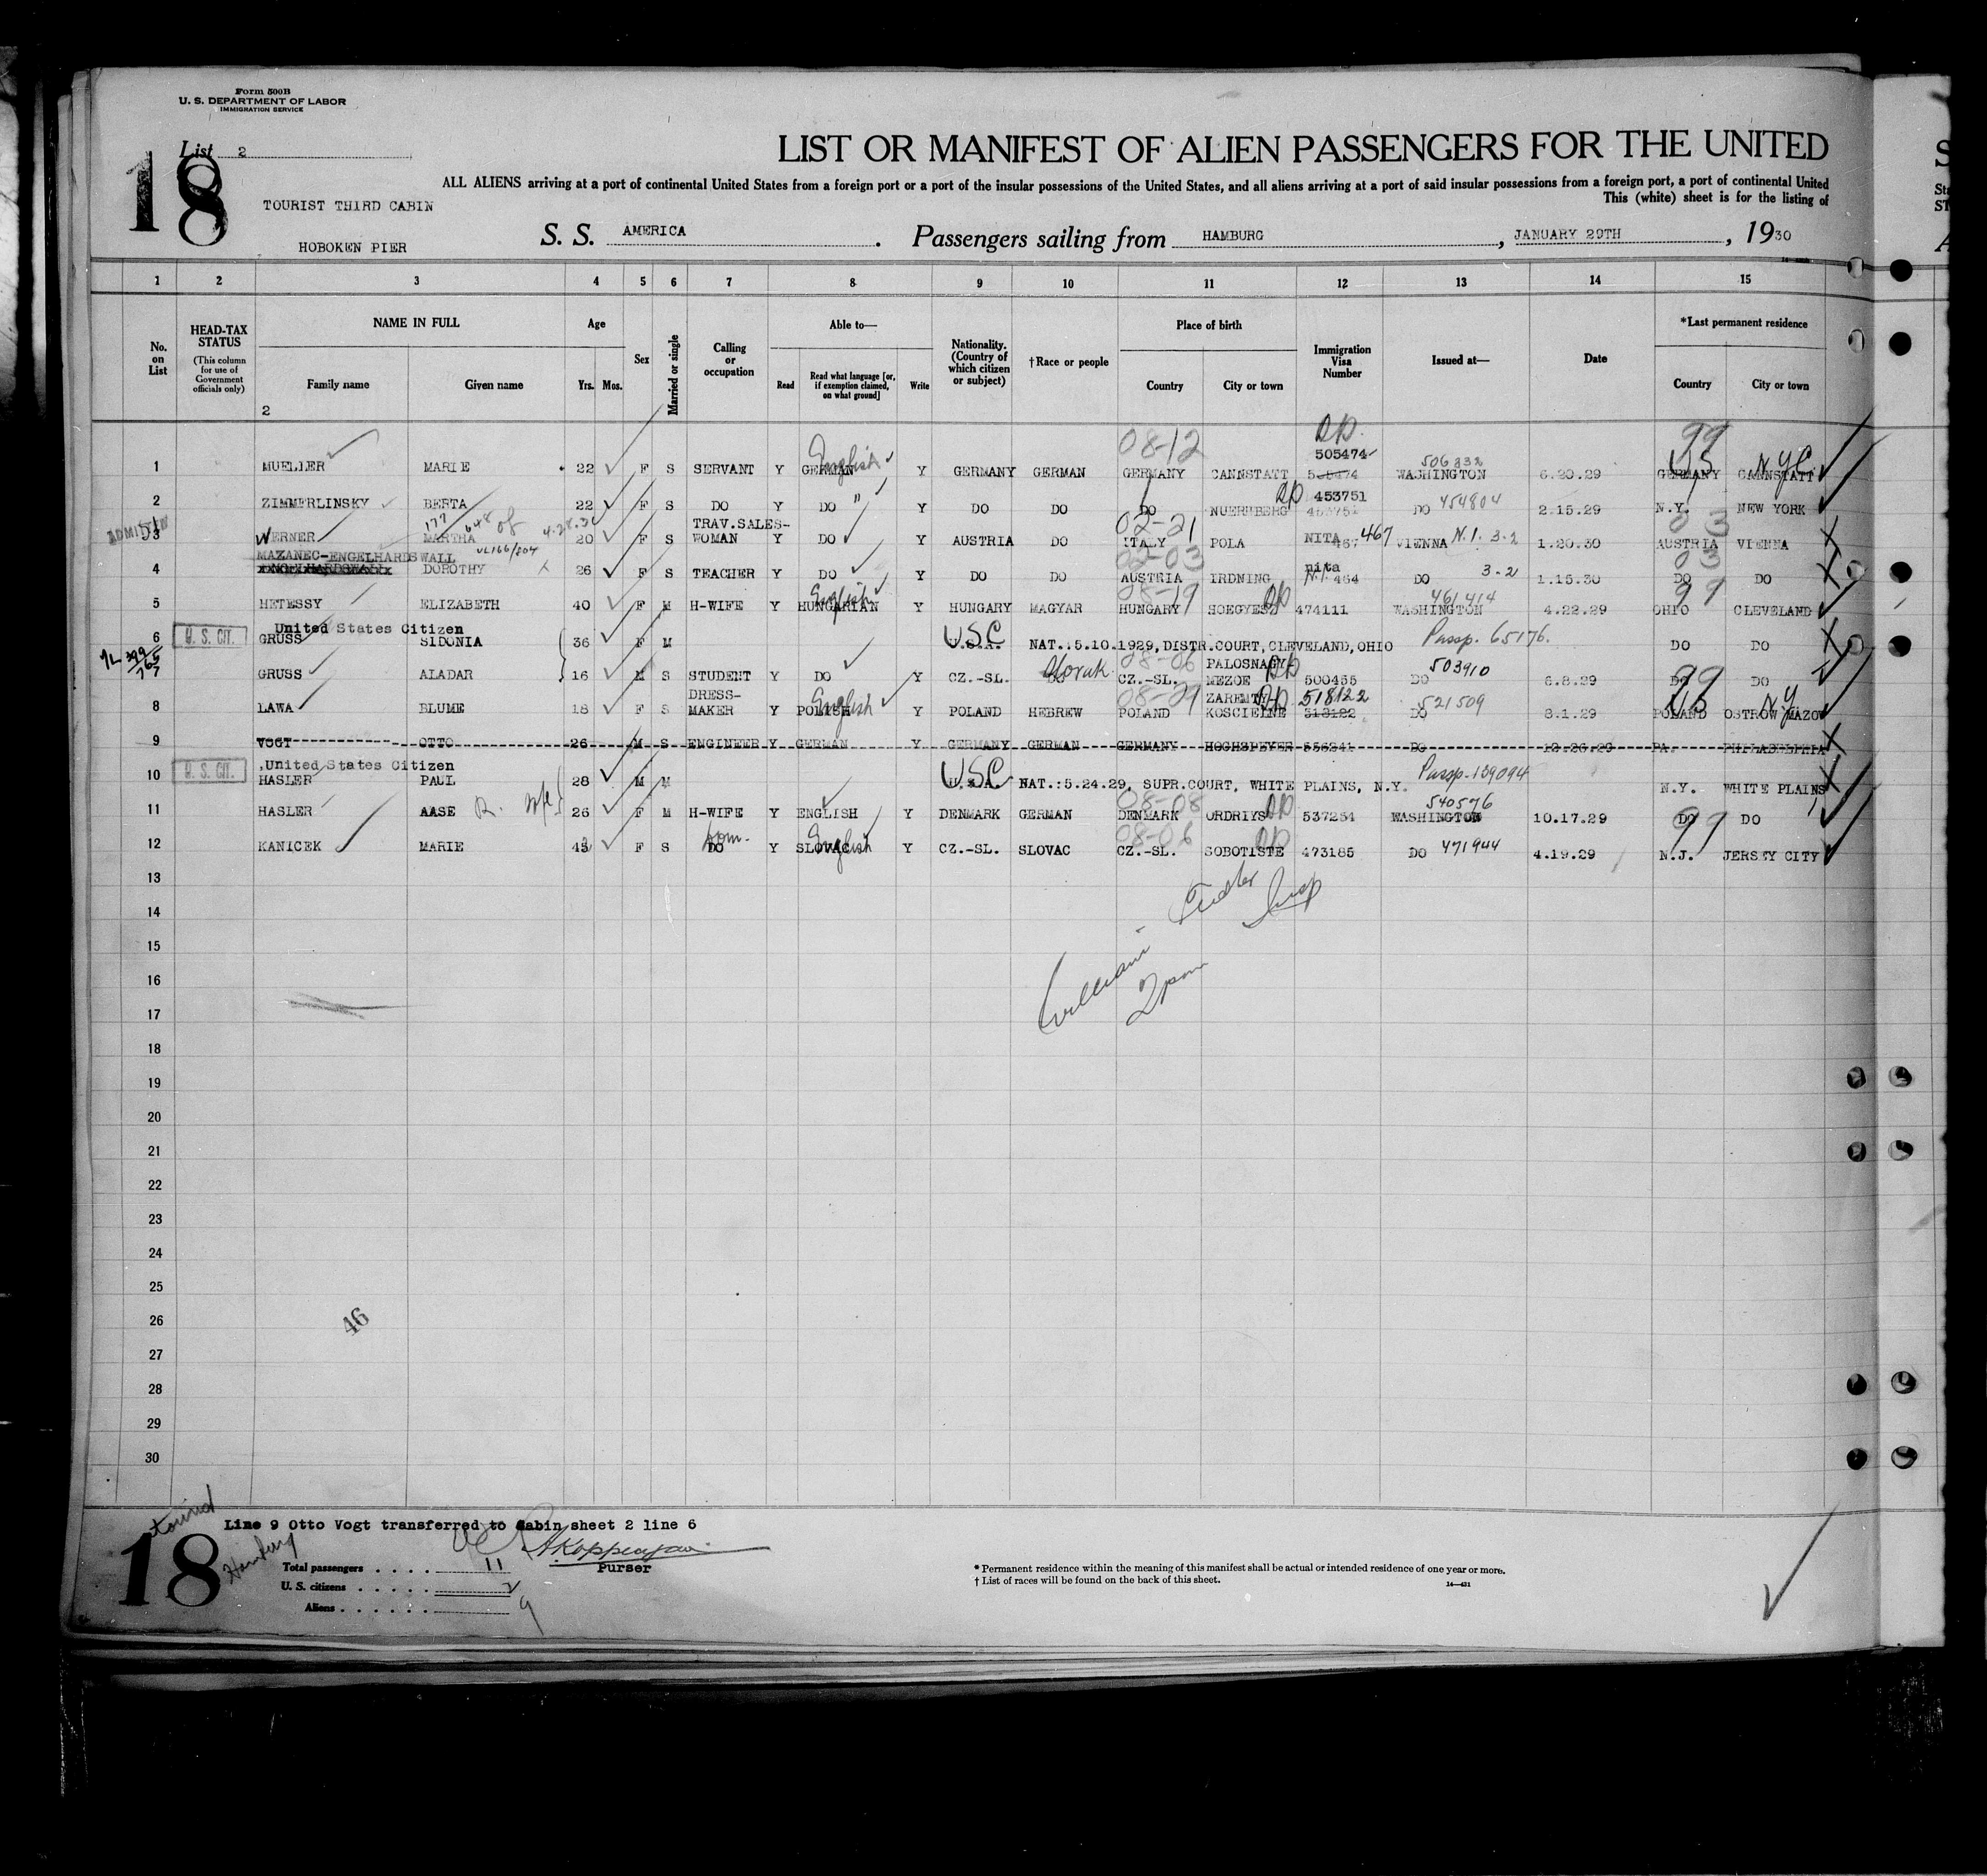 Form 500B
U. S. DEPARTMENT OF LABOR
IMMIGRATION SERVICE
List 2
18
LIST OR MANIFEST OF ALIEN PASSENGERS FOR THE UNITED
ALL ALIENS arriving at a port of continental United States from a foreign port or a port of the insular possessions of the United States, and all aliens arriving at a port of said insular possessions from a foreign port, a port of continental United
This (white) sheet is for the listing of
TOURIST THIRD CABIN
HOBOKEN PIER
S. S. AMERICA . Passengers sailing from HAMBURG , JANUARY 29TH , 1930
1 2 3 4 5 6 7 8 9 10 11 12 13 14 15
No. on List
HEAD-TAX STATUS
(This column for use of Government officials only)
NAME IN FULL
Family name
Given name
2
Age
Yrs. Mos.
Sex
Married or single
Calling or occupation
Able to—
Read
Read what language [or, if exemption claimed, on what ground]
Write
Nationality. (Country of which citizen or subject)
†Race or people
Place of birth
Country
City or town
Immigration Visa Number
Issued at—
Date
*Last permanent residence
Country
City or town
08-12 505474 506332 99 US NYC
1 MUELLER MARIE 22 F S SERVANT Y GERMAN English Y GERMANY GERMAN GERMANY CANNSTATT WASHINGTON 6.20.29 GERMANY CANNSTATT
453751
2 ZIMMERLINSKY BERTA 22 F S DO Y DO " Y DO DO DO NUERNBERG 453751 DO 454804 2.15.29 N.Y. NEW YORK
ADMITTED 177 648 4.28.31 TRAV.SALES- 02-21 03
3 WERNER MARTHA 20 F S WOMAN Y DO Y AUSTRIA DO ITALY POLA NITA 467 467 VIENNA N.I. 3-2 1.20.30 AUSTRIA VIENNA
MAZANEC-ENGELHARDSWALL 02-03 nita 03
4 DOROTHY 26 F S TEACHER Y DO Y DO DO AUSTRIA IRDNING N.I. 464 DO 3-2 1.15.30 DO DO
08-19 461414 99
5 HETESSY ELIZABETH 40 F M H-WIFE Y HUNGARIAN English Y HUNGARY MAGYAR HUNGARY HOEGYESZ 474111 WASHINGTON 4.22.29 OHIO CLEVELAND
United States Citizen
6 U. S. CIT. GRUSS SIDONIA 36 F M USC U.S.A. NAT.:5.10.1929,DISTR.COURT,CLEVELAND,OHIO Passp. 65176. DO DO
08-06 PALOSNAGY- 503910 99
GRUSS ALADAR 16 M S STUDENT Y DO Y CZ.-SL. DO Slovak CZ.-SL. MEZOE 500455 DO 6.8.29 DO DO
DRESS- 08-29 518122 521509 US NY
8 LAWA BLUME 18 F S MAKER Y POLISH English Y POLAND HEBREW POLAND KOSCIELNE DO 8.1.29 POLAND OSTROW MAZOW
9 VOGT OTTO 26 M S ENGINEER Y GERMAN Y GERMANY GERMAN GERMANY HOCHSPEYER 556241 DO 12.26.29 PA. PHILADELPHIA
United States Citizen
10 U. S. CIT. HASLER PAUL 28 M M USC U.S.A. NAT.:5.24.29, SUPR.COURT, WHITE PLAINS, N.Y. Passp.139094 N.Y. WHITE PLAINS
08-08 540576 99
11 HASLER AASE R. 26 F M H-WIFE Y ENGLISH Y DENMARK GERMAN DENMARK ORDRIYS 537254 WASHINGTON 10.17.29 DO DO
dom. 08-06
12 KANICEK MARIE 43 F S DO Y SLOVAC English Y CZ.-SL. SLOVAC CZ.-SL. SOBOTISTE 473185 DO 471944 4.19.29 N.J. JERSEY CITY
13
14
15
16
17
18
19
20
21
22
23
24
25
26
27
28
29
30
46
Line 9 Otto Vogt transferred to Cabin sheet 2 line 6
18
Purser
Total passengers . . . . 11
U. S. citizens . . . . . 2
Aliens . . . . . . 9
* Permanent residence within the meaning of this manifest shall be actual or intended residence of one year or more.
† List of races will be found on the back of this sheet.
14—431